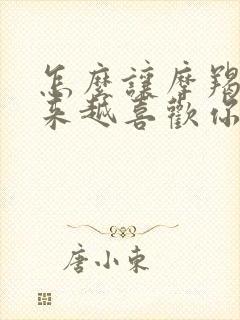 怎麼讓摩羯
來越喜歡你
唐小東